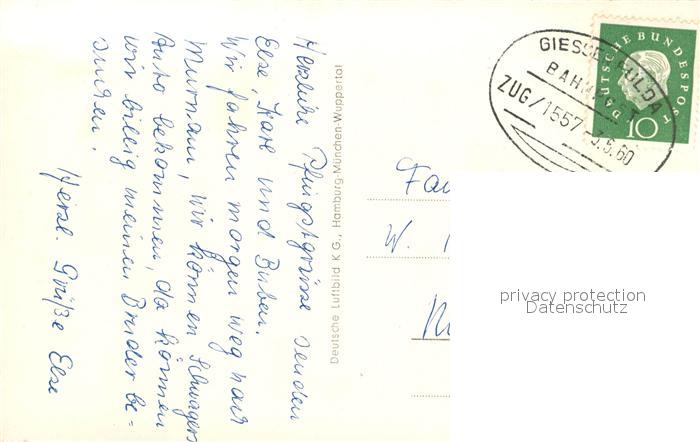 Herzliche Pfingstgrüsse senden
Else, Karl und Buben.
Wir fahren morgen weg nach
Murnau, wir können Schwagers
Auto bekommen, da können
wir billig meinen Bruder be-
suchen.
Herzl. Grüße Else
Deutsche Luftbild K G., Hamburg-München-Wuppertal
GIESSEN-FULDA
BAHNPOST
ZUG/1557 -3.6.60
DEUTSCHE BUNDESPOST
10
Fa
W.
privacy protection
Datenschutz